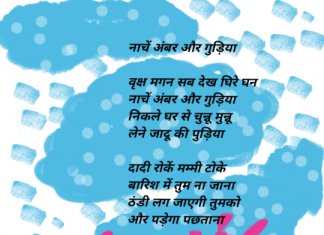 नाचें अंबर और गुड़िया
वृक्ष मगन सब देख घिरे घन
नाचें अंबर और गुड़िया
निकले घर से चुन्नू मुन्नू
लेने जादू की पुड़िया
दादी रोकें मम्मी टोके
बारिश में तुम ना जाना
ठंडी लग जाएगी तुमको
और पड़ेगा पछताना